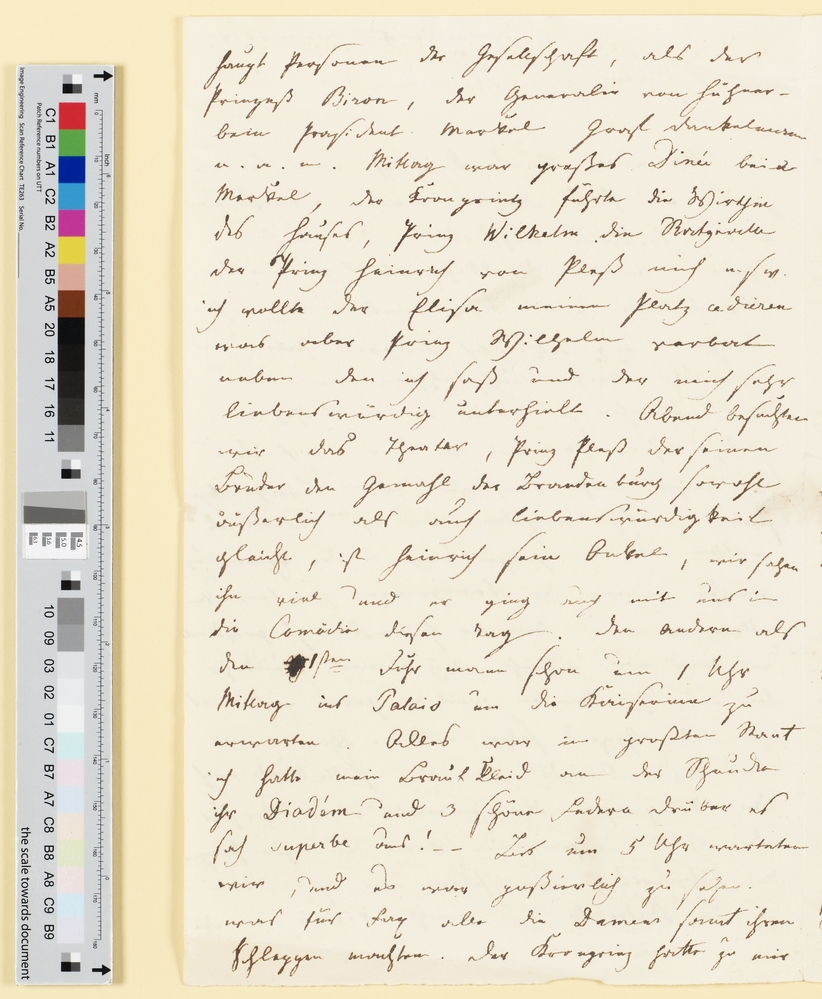 haupt Personen der Gesellschaft, als der
Prinzeß Biron, der Generalin von Hühner-
bein President Merkel Graf Dankelmann
u. a. m. Mittag war großes Diné bei
Merkel, der Kronprintz führte die Wirthin
des Hauses, Prinz Wilhelm die
der Prinz Heinrich von Pleß mich u. s. w.
ich wollte der Elisa meinen Platz cediren
was aber Prinz Wilhelm verbat
neben den ich saß und der mich sehr
liebenswürdig unterhielt. Abend besuchten
wir das Theater, Prinz Pleß der seinen
Bruder den Gemahl der Brandenburg sowohl
äußerlich als auch liebenswürdigkeit
gleicht, ist Heinrich sein Onkel, wir sahen
ihn viel und er ging auch mit uns in
die Comödie diesen Tag. Den andern als
den 1sten fuhr mann schon um 1 Uhr
Mittag ins Palais um die Kaiserinn zu
erwarten. Alles war im großten Staat
ich hatte mein Braut Kleid an der
ihr Diadem und 3 schöne Federn drüber es
sah superbe aus! -- Bis um 5 Uhr warteten
wir, und es war poßierlich zu sehen.
was für alle die Damens samt ihren
Schleppen machten. Der Kronprinz hatte zu mir
C1 B1 A1 C2 B2 A2 B5 A5 20 18 17 16 11
10 09 03 02 01 C7 B7 A7 C8 B8 A8 C9 B9
Image Engineering Scan Reference Chart TE263 Serial No.
Patch Reference numbers on UTT
mm
inch
the scale towards document